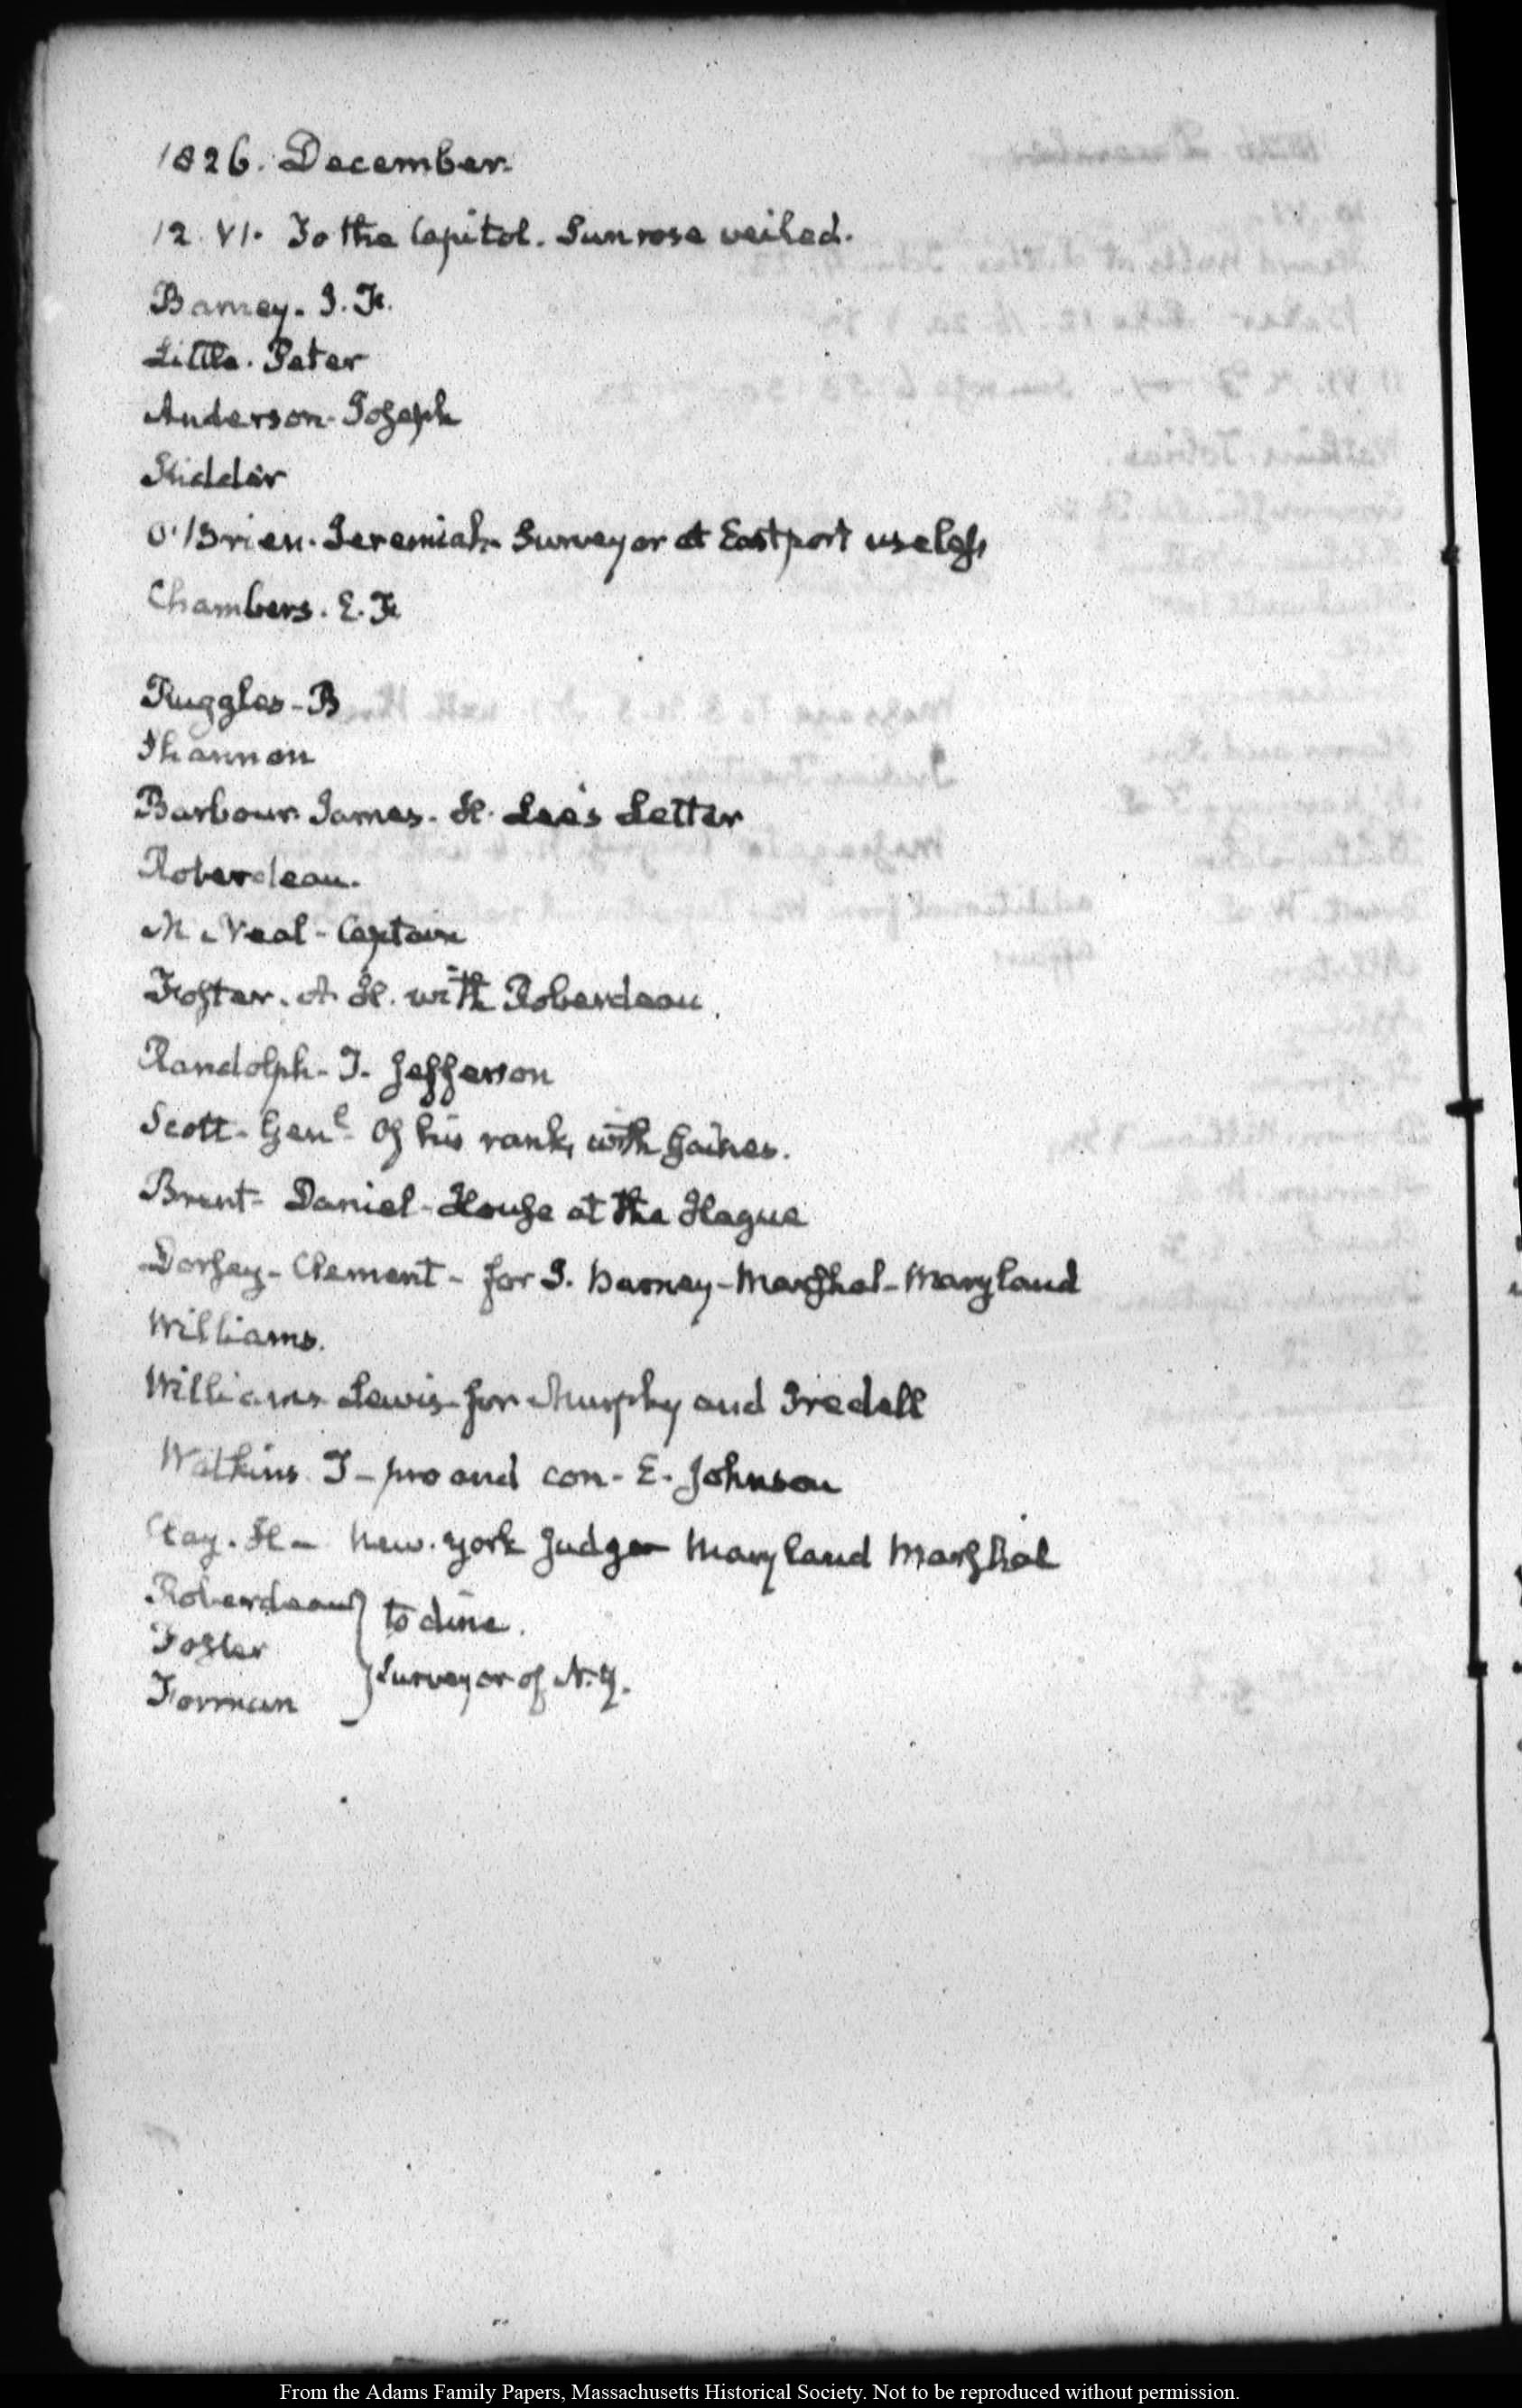 1826. December.
12. VI. To the Capitol. Sun rose veiled.
Barney. J. H.
Little. Peter
Anderson. Joseph
Kidder
O'Brien. Jeremiah. Surveyor at Eastport useless
Chambers. E. F.
Ruggles - B
Thannon
Barbour James. H. Lee's Letter
Roberdeau.
M Neal - Captain
Foster. A. H. with Roberdeau.
Randolph - T. Jefferson
Scott - Genl. Of his rank, with Gaines.
Brent - Daniel - House at the Hague
Dorsey - Clement - for J. Barney - Marshal - Maryland
Williams.
Williams Lewis for Murphy and Iredell
Watkins. T - pro and con - E. Johnson
Clay. H - New-York Judge - Maryland Marshal
Roberdeau } to dine.
Foster
Forman } Surveyor of N.Y.
From the Adams Family Papers, Massachusetts Historical Society. Not to be reproduced without permission.